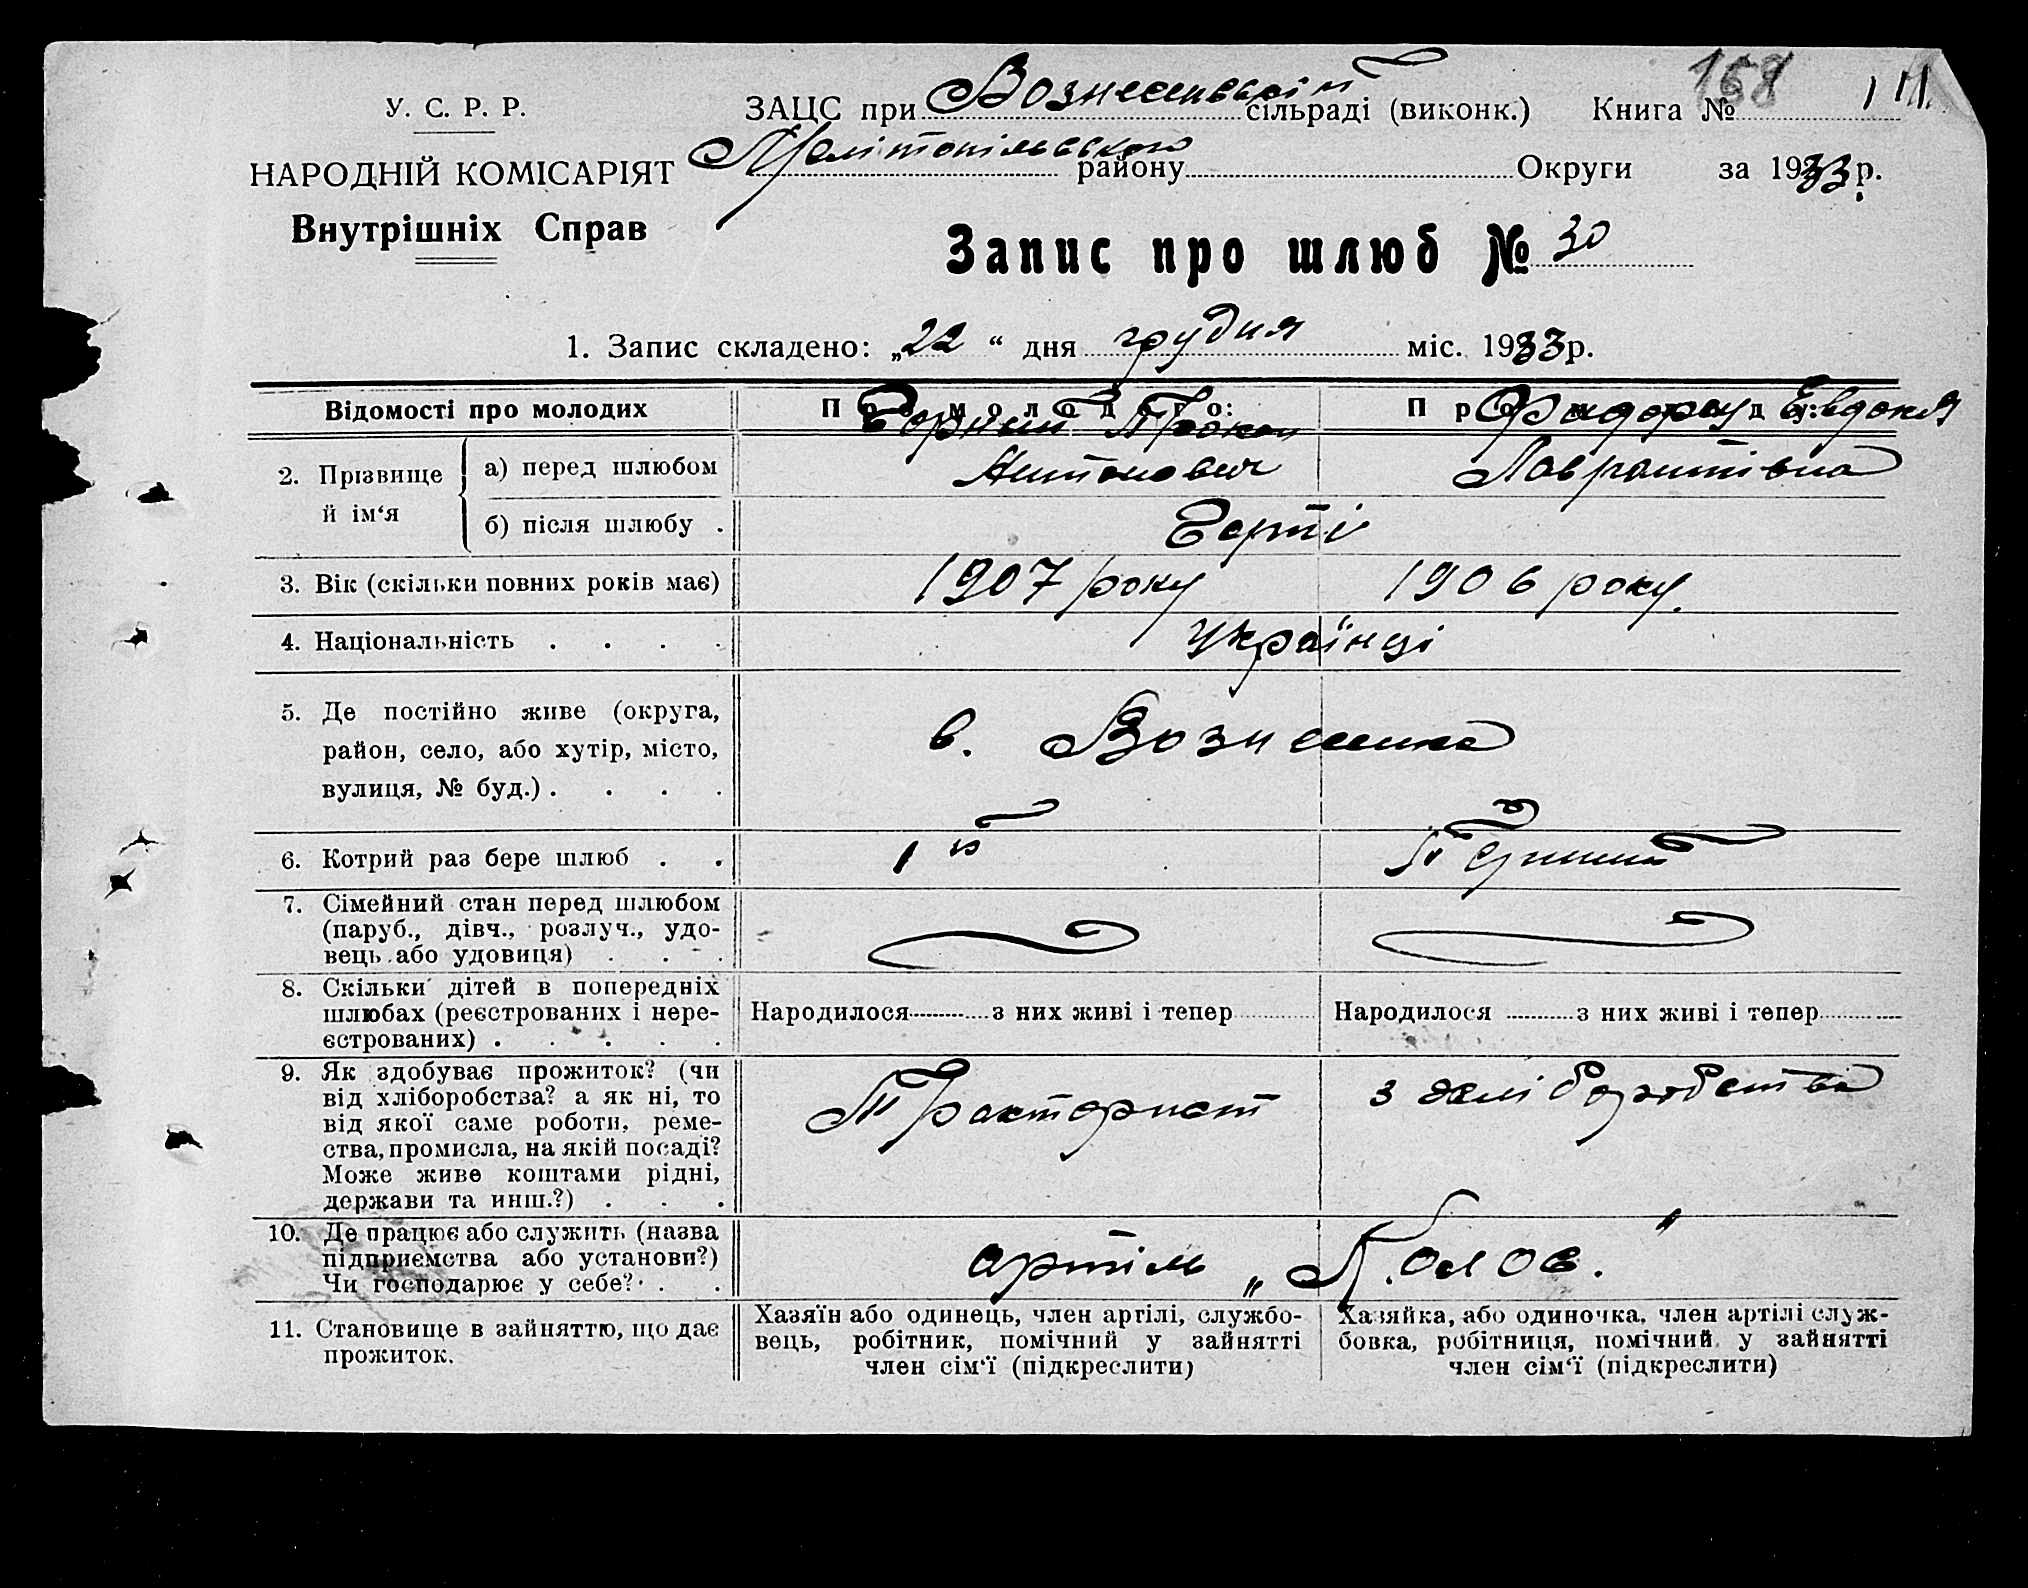 168
У. С. Р. Р. ЗАЦС при Вознесенській сільраді (виконк.) Книга №
НАРОДНІЙ КОМІСАРІЯТ Мелітопільського району Округи за 1933 р.
Внутрішніх Справ
Запис про шлюб № 30
1. Запис складено: „22 “ дня грудня міс. 1933 р.
Відомості про молодих Про молодого: Про молоду:
2. Прізвище й ім‘я а) перед шлюбом Антонович Евдокія Лаврентівна
б) після шлюбу .
3. Вік (скільки повних років має) 1907 року 1906 року.
4. Національність . . . . Українці
5. Де постійно живе (округа,
район, село, або хутір, місто,
вулиця, № буд.) . . . . в. Вознесенка
6. Котрий раз бере шлюб . . 1й Перший
7. Сімейний стан перед шлюбом
(паруб., дівч., розлуч., удо-
вець або удовиця) . . .
8. Скільки дітей в попередніх
шлюбах (реєстрованих і нере-
єстрованих) . . . . .
Народилося з них живі і тепер Народилося з них живі і тепер
9. Як здобуває прожиток? (чи
від хліборобства? а як ні, то
від якої саме роботи, реме-
ства, промисла, на якій посаді?
Може живе коштами рідні,
держави та инш.?) . . .
Тракторист з хліборобства
10. Де працює або служить (назва
підприємства або установи?)
Чи господарює у себе? . .
артіль „Колос."
11. Становище в зайняттю, що дає
прожиток.
Хазяїн або одинець, член артілі, службо-
вець, робітник, помічний у зайнятті
член сім‘ї (підкреслити)
Хазяйка, або одиночка, член артілі служ-
бовка, робітниця, помічний у зайнятті
член сім‘ї (підкреслити)